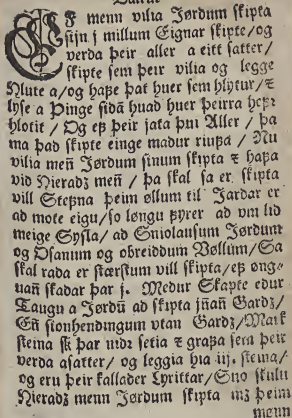 EF menn vilia Jørdum skipta
sijn j millum Eignar skipte/og
verda þeir aller a eitt satter/
skipte sem þeir vilia og legge
Hlute a/og hafe þat huer sem hlytur/ꝛ
lyse a Þinge sidā huad huer þeirra hefr
hlotit / Og ef þeir jata þui Aller / þa
ma þad skipte einge madur riufa / Nu
vilia meñ Jørdum sinum skipta ꝛ hafa
vid Hieradz meñ / þa skal sa er skipta
vill Stefna þeim øllum til Jardar er
ad mote eigu/so løngu fyrer ad vm lid
meige Sysla/ ad Sniolausum Jørdum
og Osanum og obreiddum Vøllum/Sa
skal rada er stærstum vill skipta/ef øng-
uañ skadar þar j. Medur Skapte edur
Taugu a Jørdū ad skipta jñañ Gardz/
Eñ sionhendingum vtan Gardz/Mark
steina sk þar nidz setia ꝛ grafa sem þeir
verda asatter/ og leggia hia iij. steina/
og eru þeir kallader Lyrittar/Suo skulu
Hieradz menn Jørdum skipta mz þeim
menn